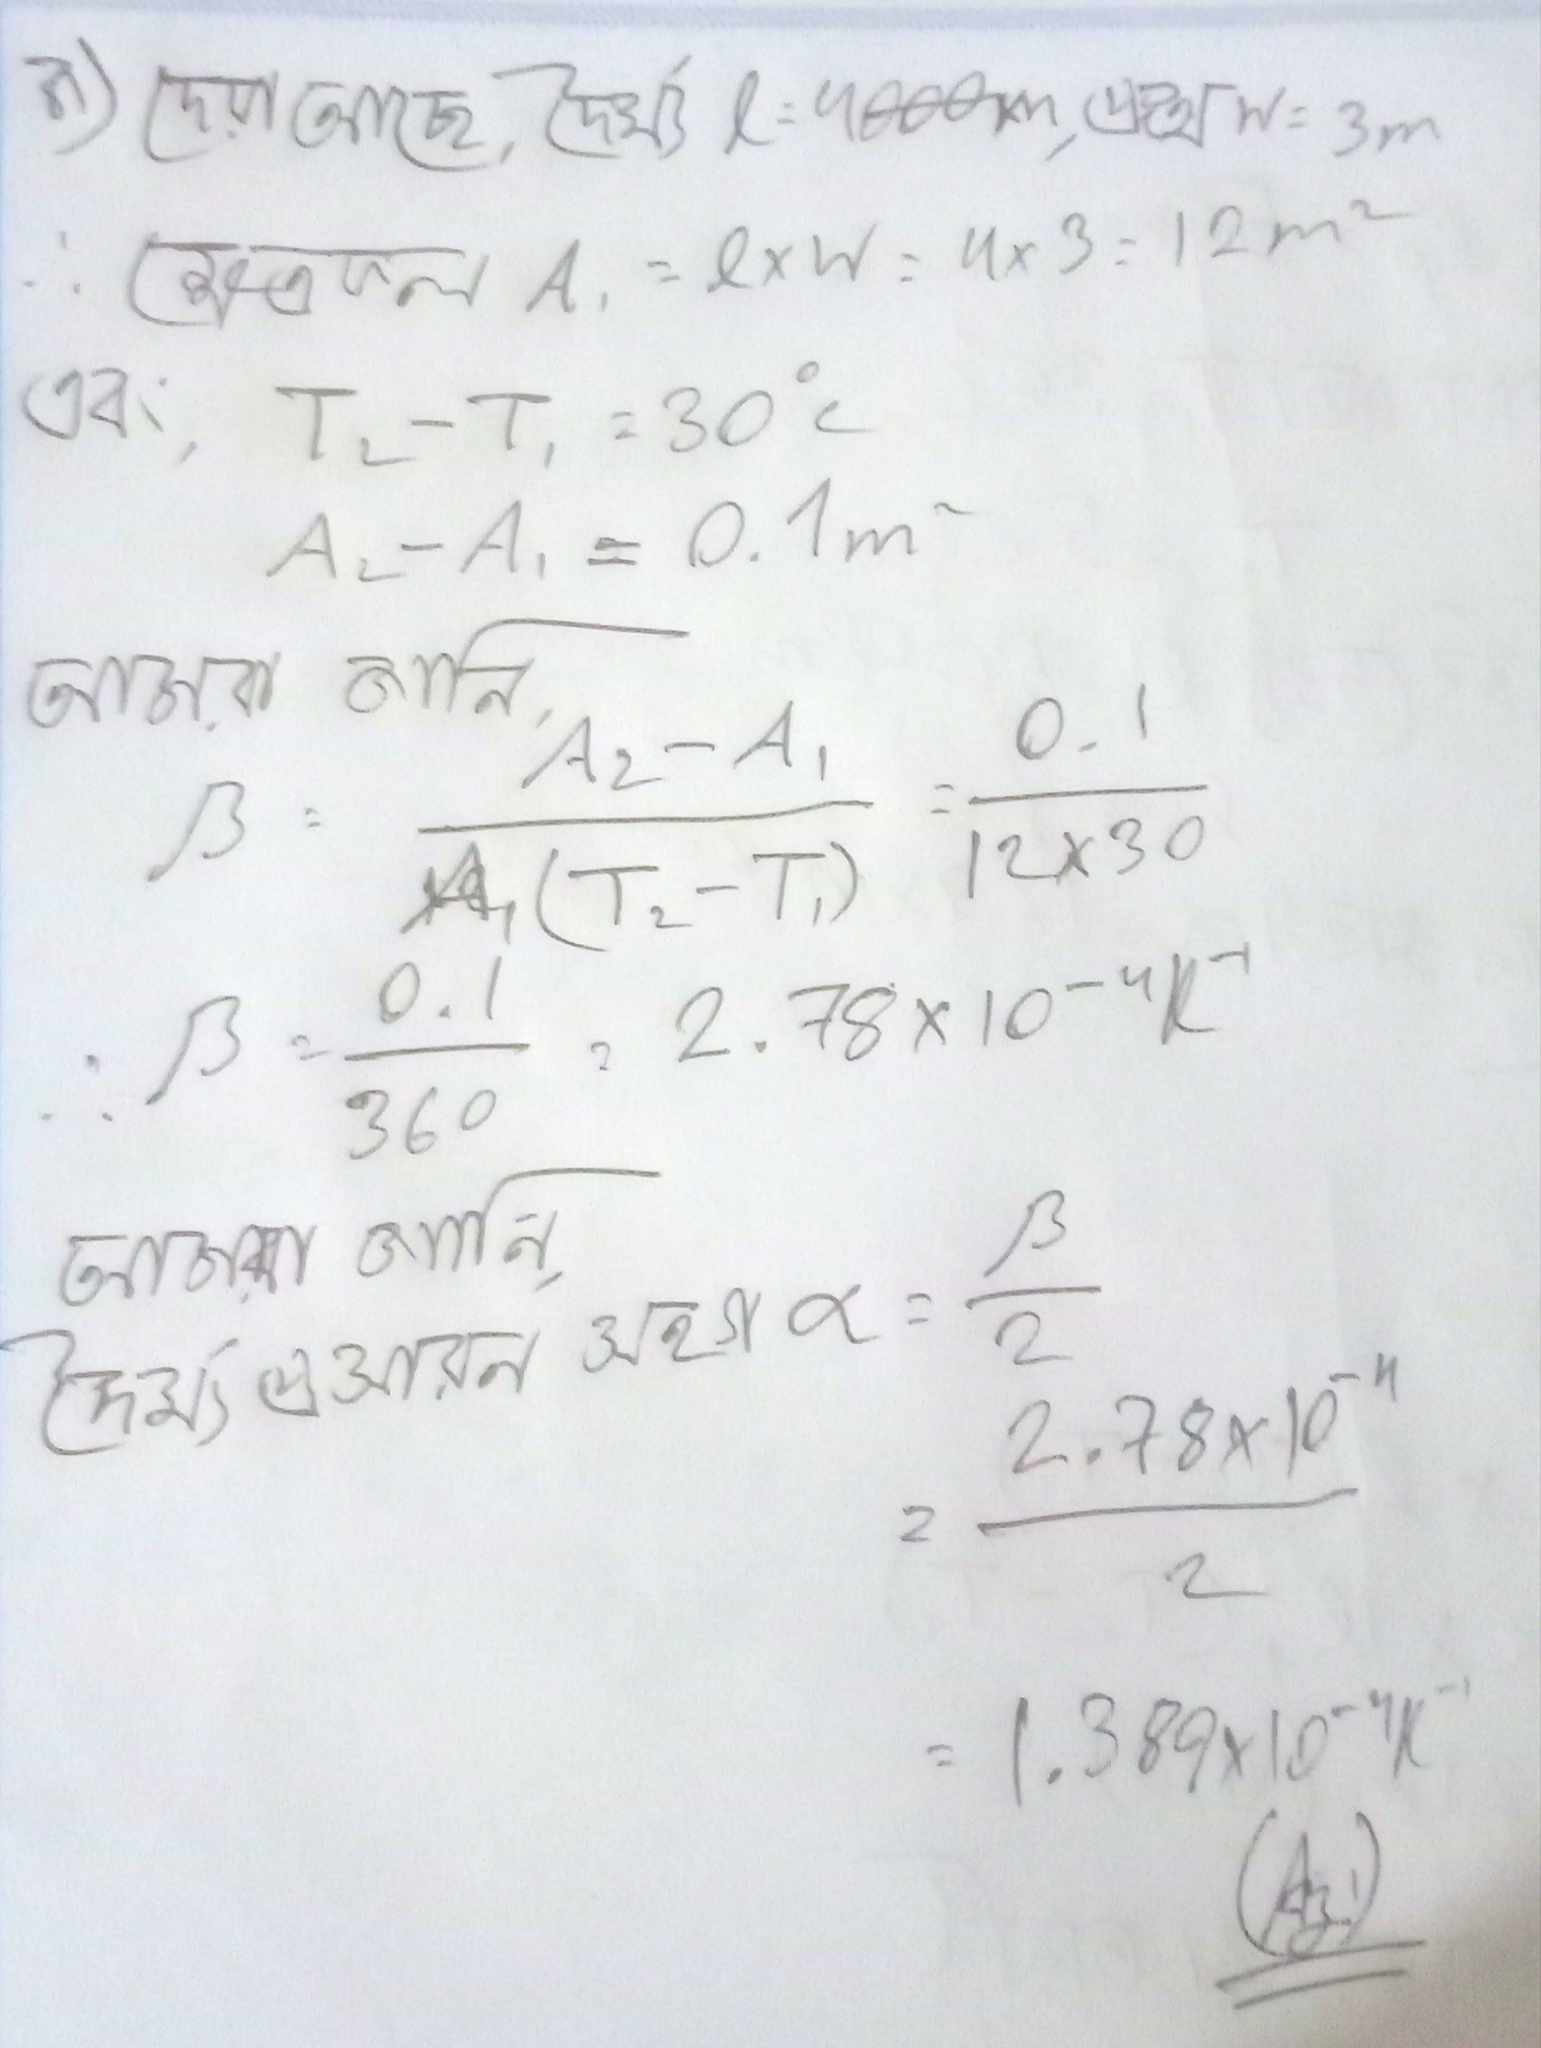 গ) দেয়া আছে, দৈর্ঘ্য l = 4m, প্রস্থ w = 3m
∴ ক্ষেত্রফল A₁ = l×w = 4×3 = 12 m²
এবং, T₂ - T₁ = 30°c
A₂ - A₁ = 0.1 m²
আমরা জানি,
β = (A₂ - A₁)/(A₁(T₂ - T₁)) = 0.1/(12×30)
∴ β = 0.1/360 = 2.78×10⁻⁴ K⁻¹
আমরা জানি,
দৈর্ঘ্য প্রসারন সহগ α = β/2
= (2.78×10⁻⁴)/2
= 1.389×10⁻⁴ K⁻¹
(Ans)